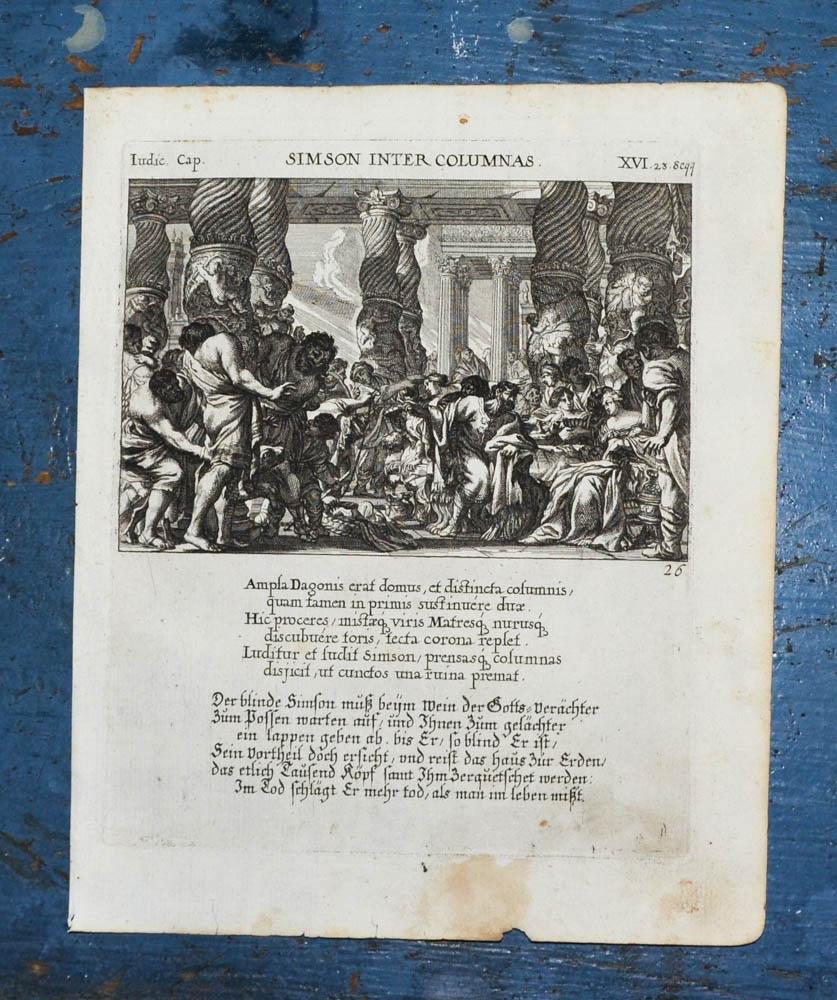 Iudic. Cap. SIMSON INTER COLUMNAS. XVI. 23. Seqq
26
Ampla Dagonis erat domus, et distincta columnis,
quam tamen in primis sustinuére duæ.
Hic proceres, mistæq́ viris Matresq́ nurusq́
discubuére toris, tecta corona replet.
Luditur et ludit Simson, prensasq́ columnas
disjicit, ut cunctos una ruina premat.
Der blinde Simson muß beÿm wein der Gotts-verächter
Zum Possen warten auf, und Ihnen Zum gelächter
ein lappen geben ab. bis Er, so blind Er ist,
Sein Vortheil doch ersicht, und reist das haus Zur Erden,
das etlich Tausend Köpf samt Ihm Zerquetschet werden:
Im Tod schlägt Er mehr tod, als man im leben mißt.